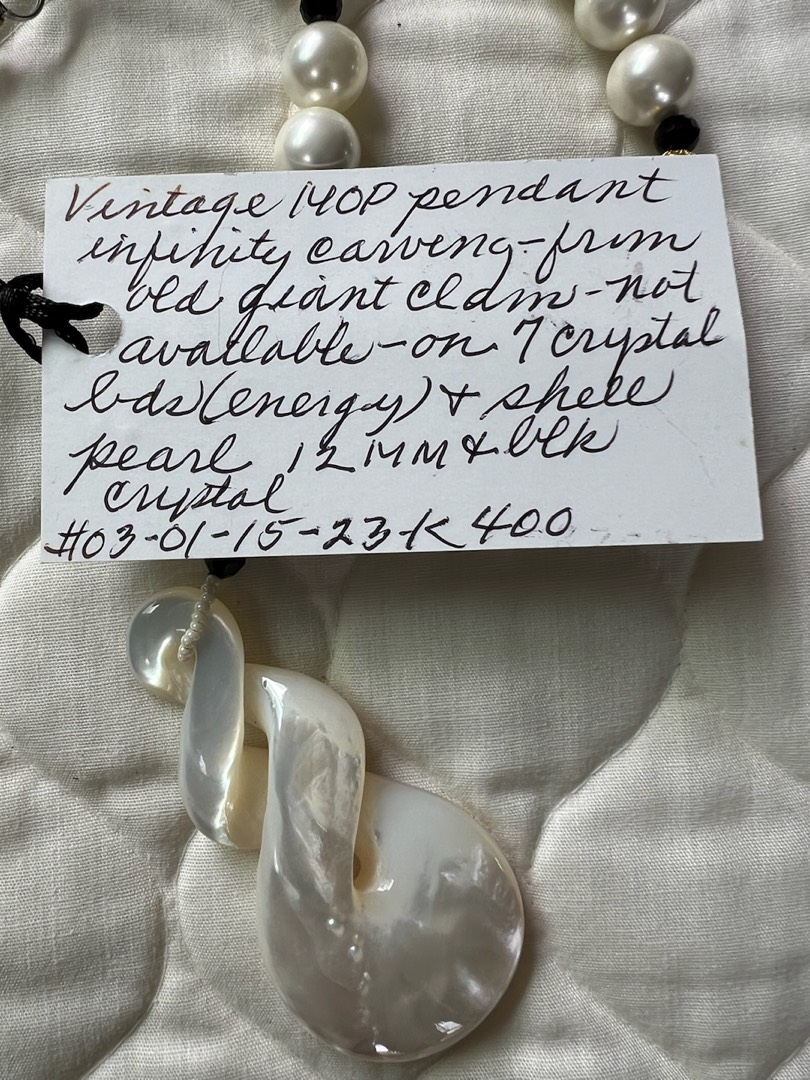 Vintage MOP pendant
infinity carving-from
old giant clam-not
available-on 7 crystal
bds (energy) & shell
pearl 12MM & blk
crystal
#03-01-15-23-K 400